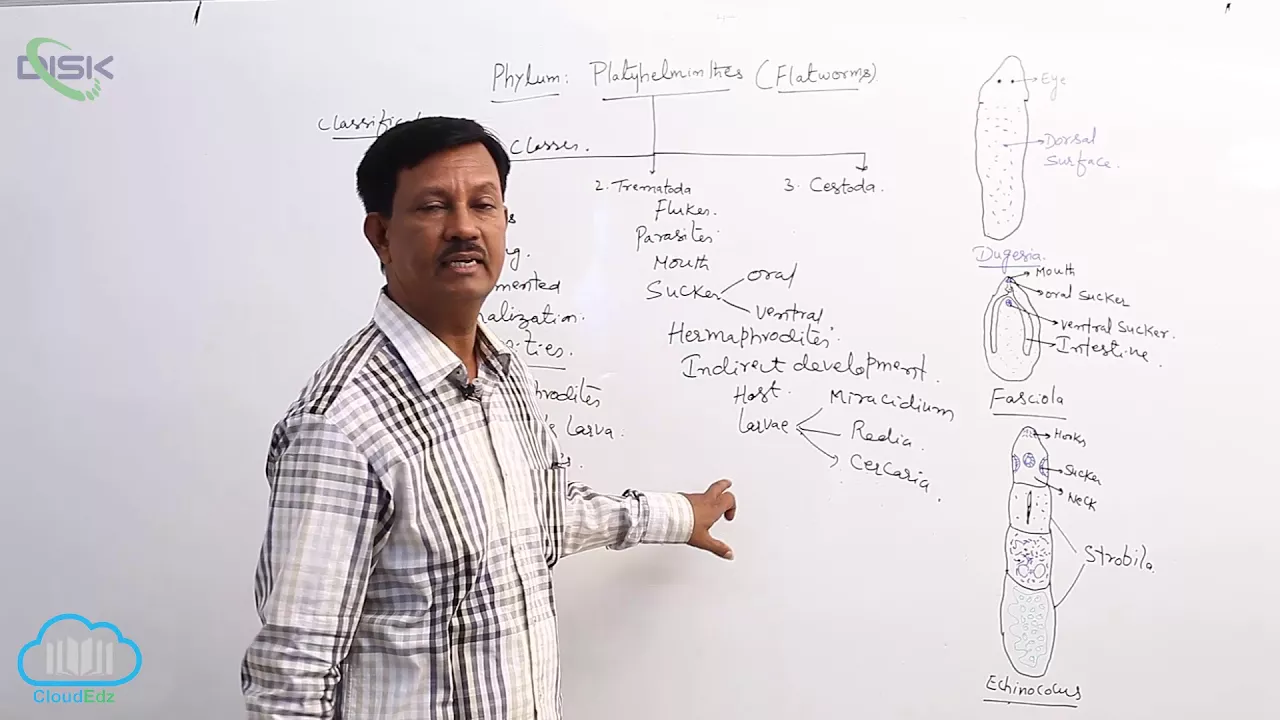 DISK
Phylum: Platyhelminthes (Flatworms)
Classes.
2. Trematoda
Flukes.
Parasites
Mouth
Sucker
oral
ventral
Hermaphrodites
Indirect development.
Host.
Larvae
Miracidium
Redia
Cercaria
3. Cestoda.
larva.
Eye
Dorsal
Surface.
Dugesia.
Mouth
oral sucker
ventral sucker.
Intestine
Fasciola
Hooks
Sucker
Neck
Strobila
Echinocolus
CloudEdz